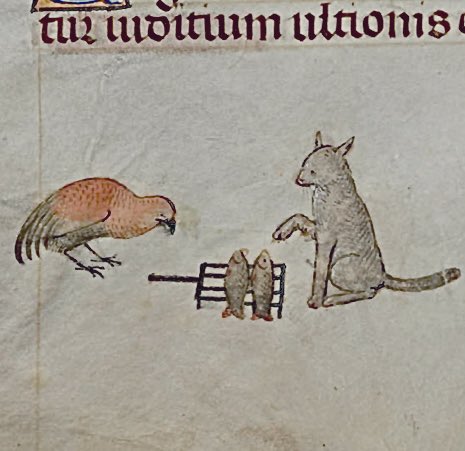 tur iuditium ultionis